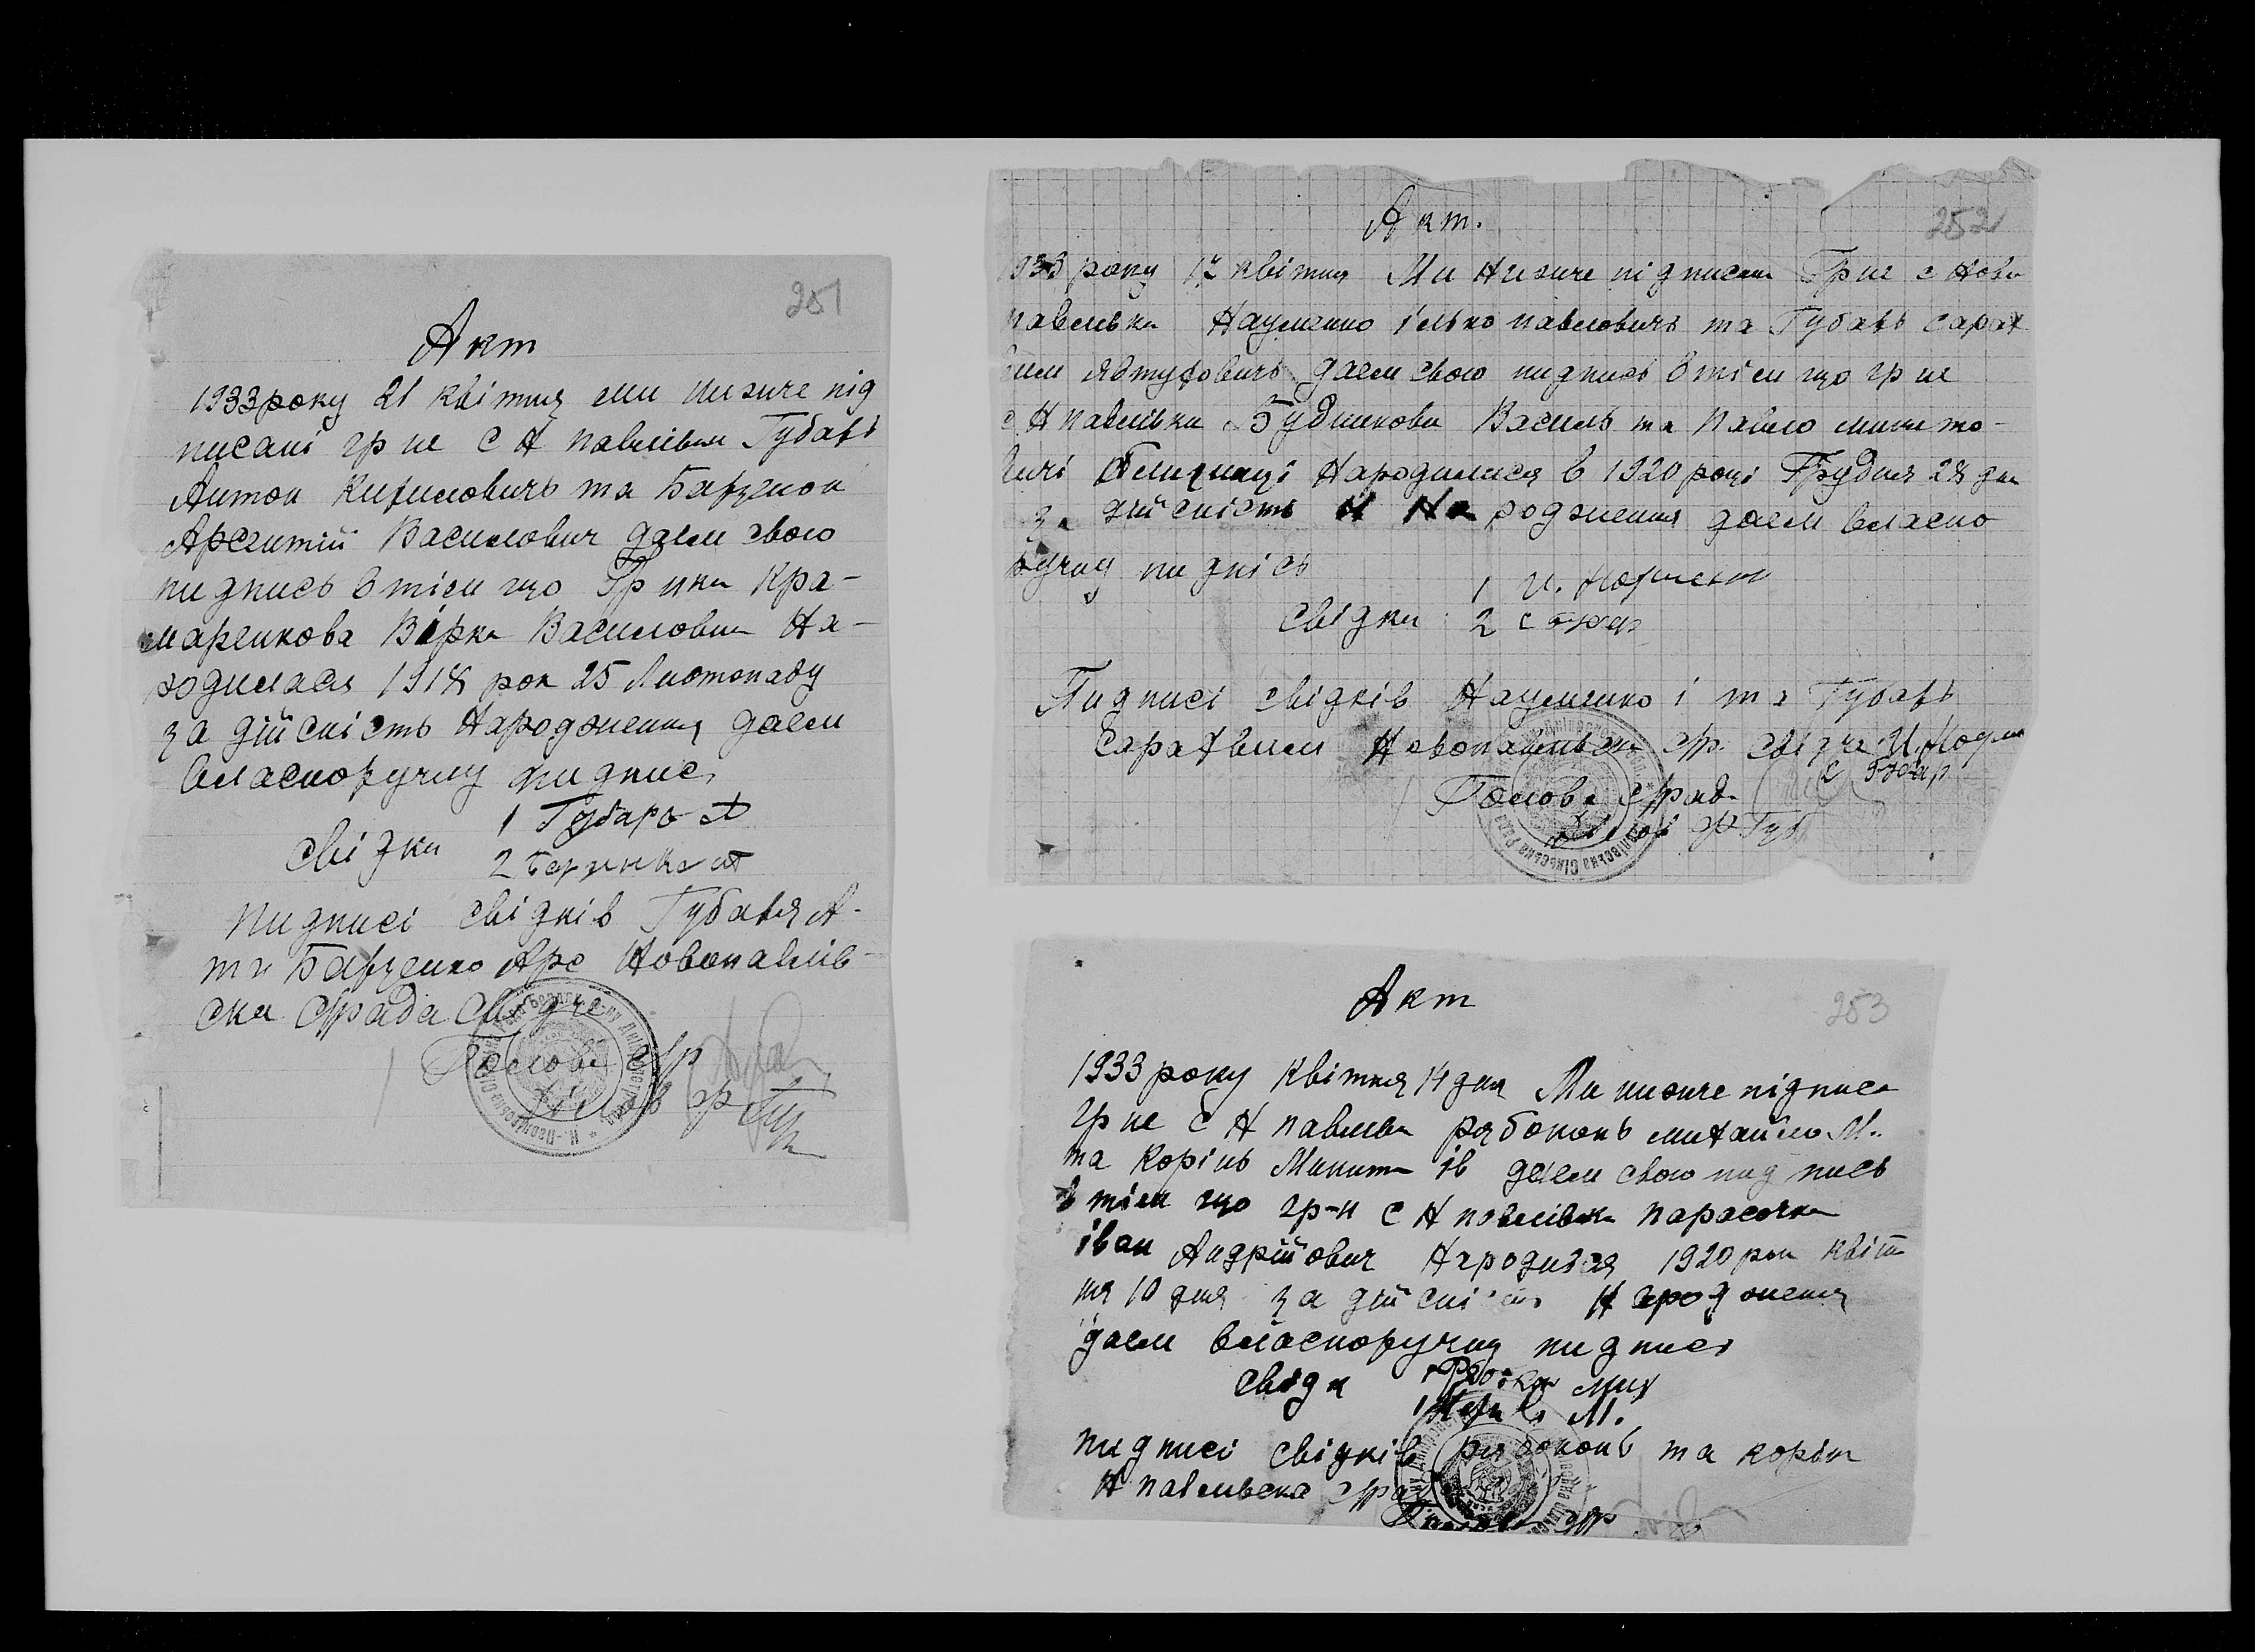 251
Акт
1933 року 21 квітня ми низче під
писані гр не с Н павлівки Губарь
Антон Кирилович та
Василович даем свою
пидпись в тім що Гр нка Кра-
маренкова Вірка Василовна На-
родилася 1918 рок 25 Листопаду
за дійсність Народження даем
власноручну пидпис
свідки 1 Губарь А
2
пидписі свідків Губаря А.
та Аре Новопавлів-
ска с/рада свідче
Голова с/р
252
Акт.
1933 року 17 квітня Ми Низче підписани Гр не с Ново
павлівки Науменко ілько павловичь та Губарь Сарах
даем свою пидпись в тім що гр не
с Н павлівки Будникови Василь та Павло микито-
вичі близнаці Народилися в 1920 році Грудня 28 дня
За дійсність Народження даем власно
ручну пидпісь
свідки 1 И.
2 с
Пидписі свідків Науменко і та Губарь
Сарахвим Новопавлівска с/р. свідче
Голова с/рад
253
Акт
1933 року Квітня 14 дня Ми низче підписа
гр не с Н павлівки рябоконь михайло М.
та Корінь Микита ів даем свою пидпись
в тім що гр-н с Н повлівки парасочка
іван Андрійович Народився 1920 рок квіт
ня 10 дня за дійсність Народження
даем власноручну пидпись
свідк мих
М.
пидписі свідків рябоконь та корінь
Н павлівска с/рад